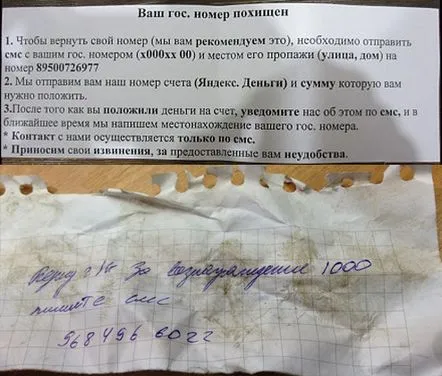 Ваш гос. номер похищен
1. Чтобы вернуть свой номер (мы вам рекомендуем это), необходимо отправить
смс с вашим гос. номером (х000хх 00) и местом его пропажи (улица, дом) на
номер 89500726977
2. Мы отправим вам наш номер счета (Яндекс. Деньги) и сумму которую вам
нужно положить.
3.После того как вы положили деньги на счет, уведомите нас об этом по смс, и в
ближайшее время мы напишем местонахождение вашего гос. номера.
* Контакт с нами осуществляется только по смс.
* Приносим свои извинения, за предоставленные вам неудобства.
За вознаграждение 1000
пишите смс
968 496 6022